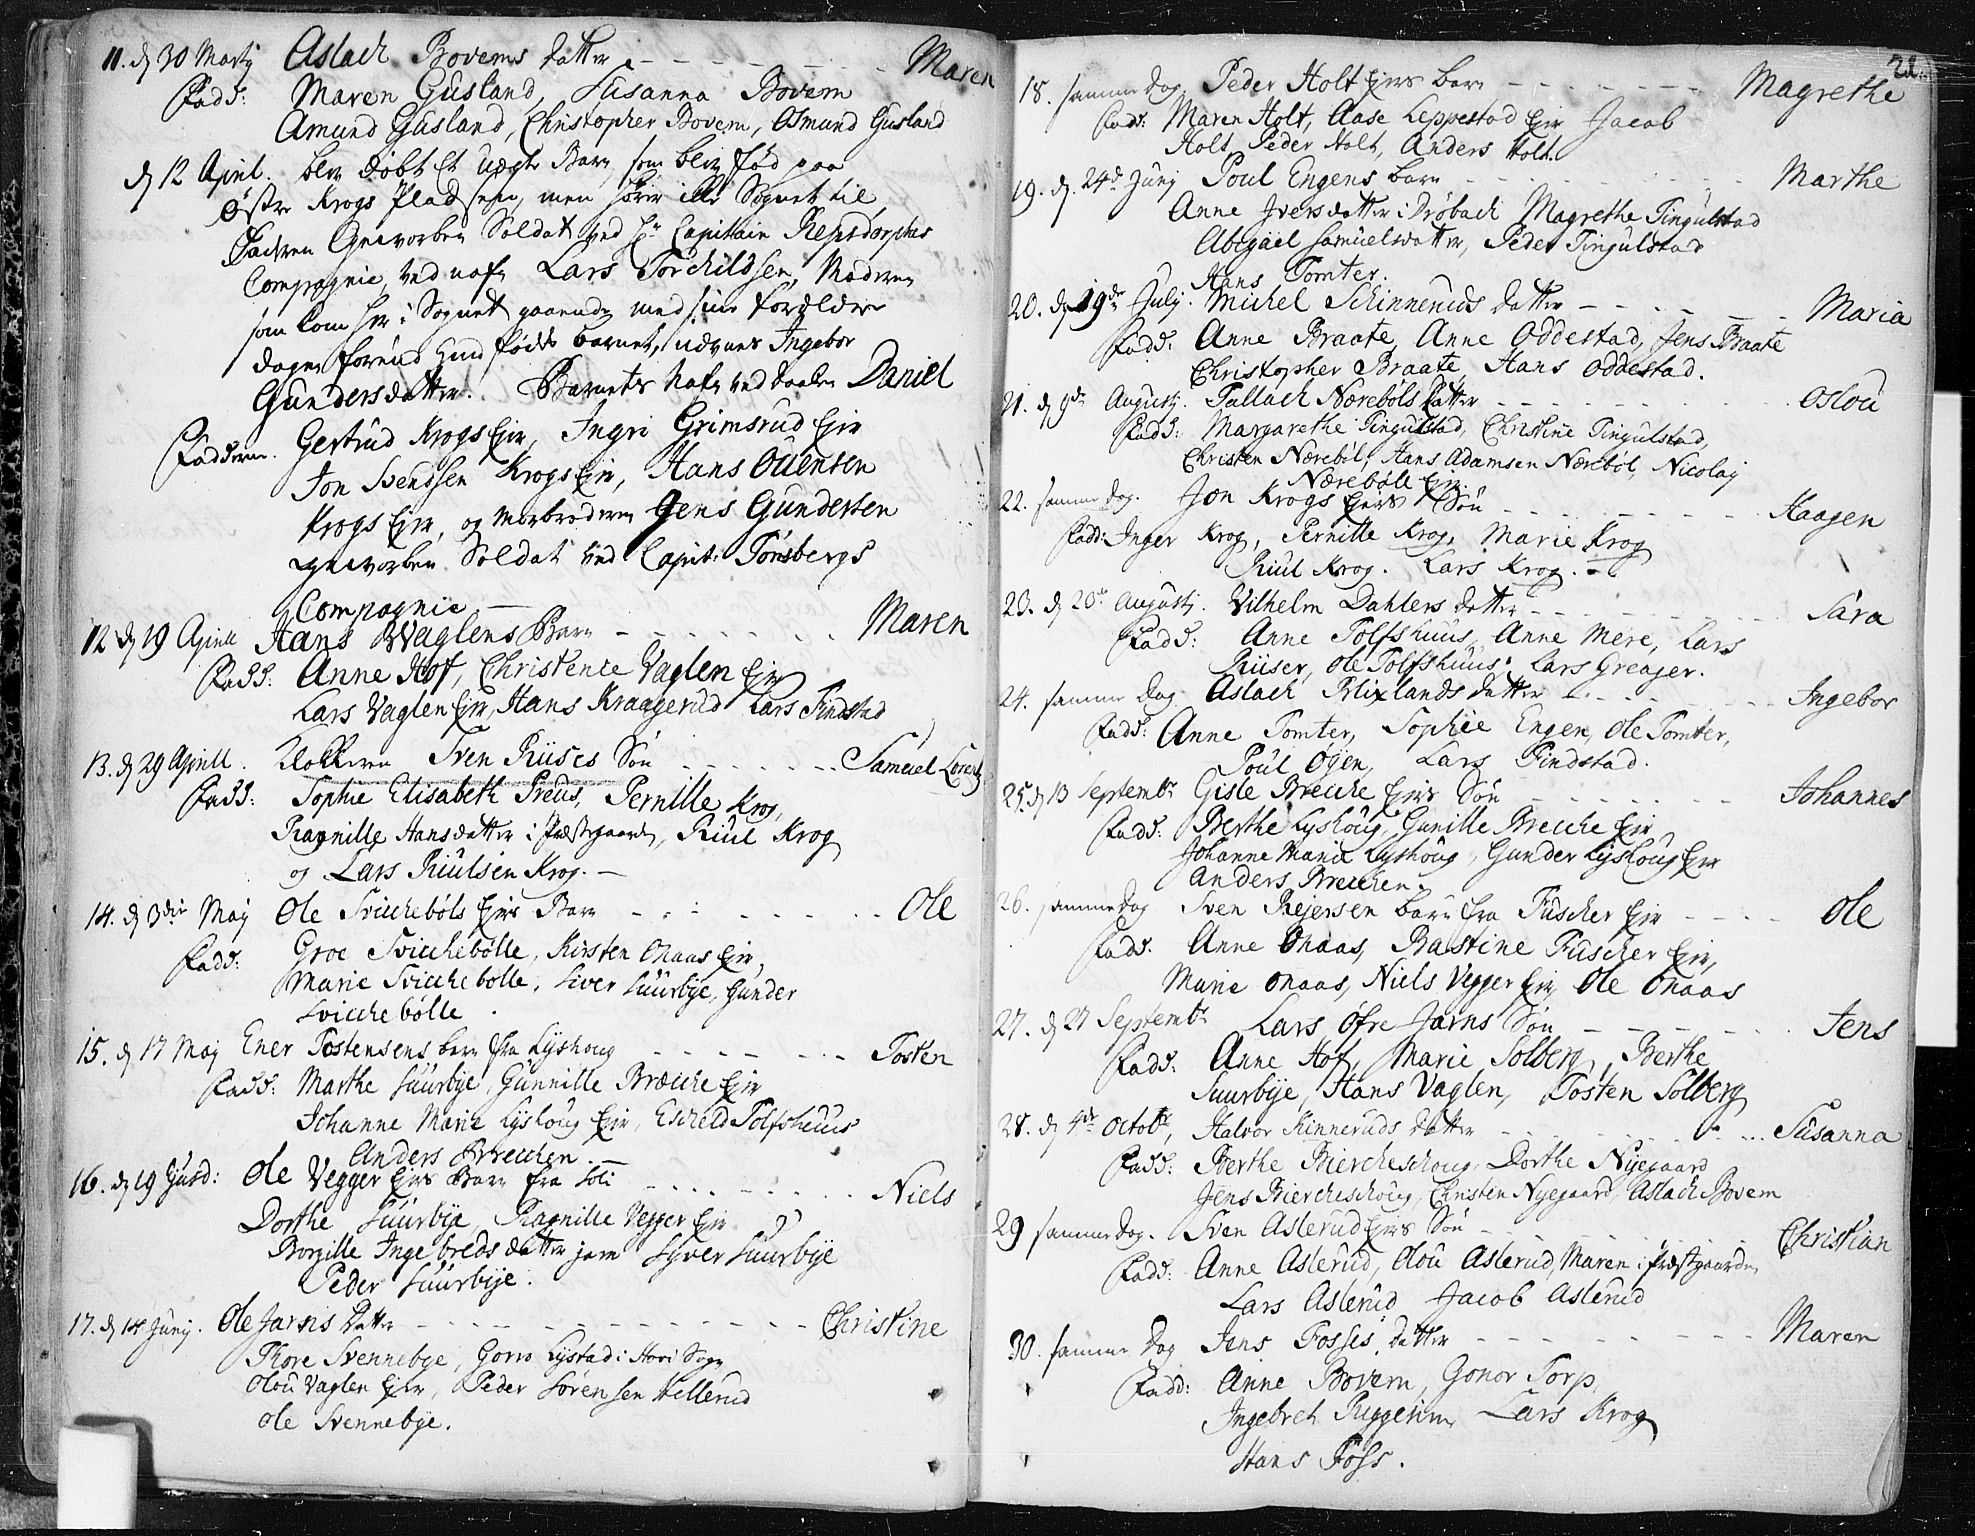 11. d 30 Martj Aslach Bovems datter - - - - Maren
Fadd: Maren Gusland, Susanna Bovem
Amund Gusland, Christopher Bovem, Osmund Gusland
d 12 Apriel. blev døbt Et uægte Barn, som blev fød paa
Østre Krogs Pladsen, men hører iche Sognet til,
Faderen Gevorben Soldat ved Hr Capitain Repsdorphs
Compagnie, ved nafn Lars Torchildsen, Moderen
som kom her i Sognet gaaende med sine forældre
dagen forend hun fødde barnet, udgives Ingebor
Gundersdatter. Barnets Nafn ved daaben Daniel
Fadderne. Gertrud Krogs Eje, Ingri Grimsrud Eje
Jon Svendsen Krogs Eje, Hans Ouensen
Krogs Eje, og Morbroderen Jens Gundersen
gevorben Soldat ved Capit: Tønsbergs
Compagnie —
12 d 19 Apriell Hans Waglens Barn - - - - Maren
Fadd: Anne Hof, Christence Vaglen Eje
Lars Vaglen Eje, Hans Kraagerud Lars Findstad
13. d 29 Apriell. Klokkeren Sven Riises Søn - - - - Samuel Lorentz
Fadd: Sophie Elisabeth Preus, Pernille Krog,
Ragnille Hansdatter i Præstegaarden, Riul Krog
og Lars Riulsen Krog. —
14. d 3die Maj Ole Svicchebøls Ejes Barn - - - - Ole
Fadd: Groe Svicchebølle, Kirsten Onaas Eje,
Marie Svicchebølle, Siver Suurbye, Gunder
Svicchebølle.
15. d 17 Maj Ener Tostensens barn fra Lyshoug - - - - Tosten
Fadd: Marthe Suurbye, Gunnille Brecche Eje
Johanne Marie Lyshoug Eje, Escheld Tolfshuus
Anders Brecchen. —
16. d 19 Ole Vegger Ejes Barn fra Soli - - - - Niels
Dorthe Suurbye, Ragnille Vegger Eje
Borgille Ingebredsdatter jarn Syver Suurbye
Peder Suurbye.
17. d 14 Junij. Ole Jarns Datter - - - - Christine
Thore Svennebye, Goro Lystad i Hovi Sogn
Olou Vaglen Eje, Peder Sørensen Hellerud
Ole Svennebye.
21.
18. samme dag. Peder Holt Ejes barn - - - - Magrethe
Fadd: Maren Holt, Aase Leppestad Eje Jacob
Holt, Peder Holt, Anders Holt.
19. d. 24de Junij Poul Engens barn - - - - Marthe
Anne Iversdatter i Drøbach Magrethe Tingulstad
Abigael Samuelsdatter, Peder Tingulstad
Hans Tomter.
20. d 19de Julj. Michel Schinneruds datter - - - - Maria
Fadd: Anne Braate, Anne Oddestad, Jens Braate
Christopher Braate, Hans Oddestad.
21. d 9de Augustj. Tallach Nærebøls Datter - - - - Oslou
Fadd: Margarethe Tingulstad, Christine Tingulstad,
Christen Nærebøl, Hans Adamsen Nærebøl, Nicolaj
Nærebølle Eje.
22. samme dag. Jon Krogs Ejes Søn - - - - Haagen
Fadd: Inger Krog, Pernille Krog, Marie Krog
Riul Krog. Lars Krog. —
23. d 20de Augustj. Vilhelm Dahlers datter - - - - Sara
Fadd: Anne Tolfshuus, Anne Mere, Lars
Riiser, Ole Tolfshuus. Lars Greager.
24. samme Dag. Aslach Blixlands datter - - - - Ingebor
Fadd: Anne Tomter, Sophie Engen, Ole Tomter,
Poul Øyen, Lars Findstad.
25. d 13 Septembr Gisle Brecche Ejes Søn - - - - Johannes
Fadd: Berthe Lyshoug, Gunille Brecche Eje,
Johanne Marie Lyshoug, Gunder Lyshoug Eje
Anders Brecchen.
26. samme Dag Sven Rejersen barn fra Fuscher Eje - - - - Ole
Fadd: Anne Onaas, Bastine Fuscher Eje,
Marie Onaas, Niels Vegger Eje, Ole Onaas
27. d 27 Septembr Lars Øfre Jarns Søn - - - - Jens
Fadd: Anne Hof, Marie Solberg, Berthe
Suurbye, Hans Vaglen, Tosten Solberg
28. d 4de Octobr, Halvor Kinneruds datter - - - - Susanna
Fadd: Berthe Biercheschoug, Dorthe Nyegaard
Jens Biercheschoug, Christen Nyegaard, Aslach Bovem
29 samme dag. Sven Aslerud Ejes Søn - - - - Christian
Fadd: Anne Aslerud, Olou Aslerud, Maren i Præstgaarden
Lars Aslerud Jacob Aslerud
30. samme Dag Jens Fosses datter - - - - Maren
Fadd: Anne Bovem, Gonor Torp,
Ingebret Lars Krog
Hans Foss.